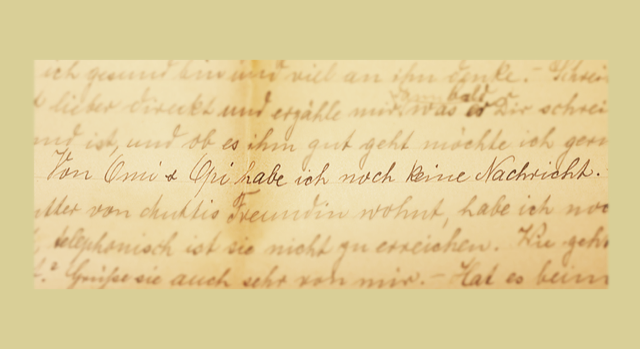 ich gesund bin und viel an ihn denke. –
lieber direkt und erzähle mir, was er Dir schrei
und ist, und ob es ihm gut geht möchte ich gern
Von Omi & Opi habe ich noch keine Nachricht.
utter von Muttis Freundin wohnt, habe ich noc
telephonisch ist sie nicht zu erreichen. Wie geh
Grüße sie auch sehr von mir. – Hat es beim